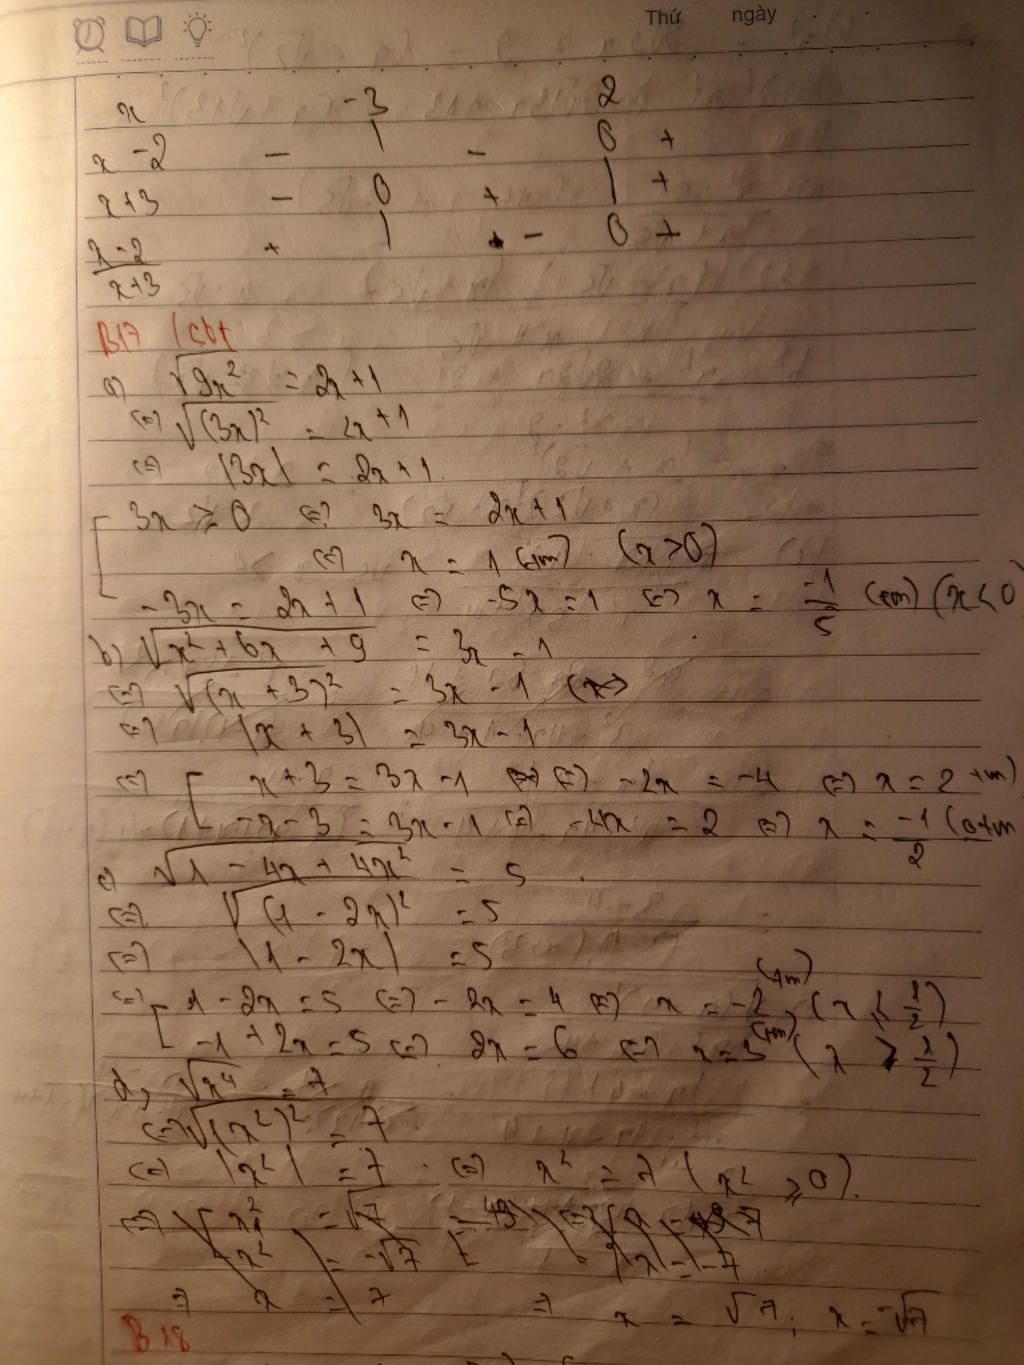 Thứ ngày
x -3 2
x - 2 - | - 0 +
x+3 - 0 + | +
x-2/x+3 + | - 0 +
B17 /sbt
a) √9x² = 2x+1
<=> √(3x)² = 2x+1
<=> |3x| = 2x+1.
3x ≥ 0 <=> 3x = 2x+1
<=> x = 1 (tm) (x>0)
-3x = 2x+1 <=> -5x = 1 <=> x = -1/5 (tm) (x<0
b) √x² + 6x + 9 = 3x - 1
<=> √(x+3)² = 3x - 1 (x>
<=> |x + 3| = 3x - 1
<=> [ x+3 = 3x - 1 <=> -2x = -4 <=> x = 2 tm)
-x - 3 = 3x - 1 <=> -4x = 2 <=> x = -1/2 (otm
c) √1 - 4x + 4x² = 5
<=> √(1 - 2x)² = 5
<=> |1 - 2x| = 5
<=> [ 1 - 2x = 5 <=> -2x = 4 <=> x = -2 (tm), (x < 1/2)
-1 + 2x = 5 <=> 2x = 6 <=> x = 3 (tm) (x > 1/2)
d, √x⁴ = 7
<=> √(x²)² = 7
<=> |x²| = 7 <=> x² = 7 (x² ≥ 0).
=> x = 7 => x = √7; x = -√7
B 18